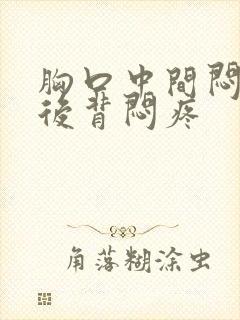 胸口中間悶
後背悶疼
角落糊涂虫